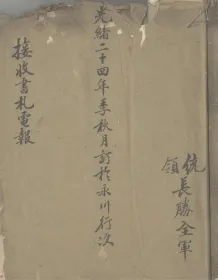 統領長勝全軍
光緒二十四年季秋月訂於永川行次
接收書札電報